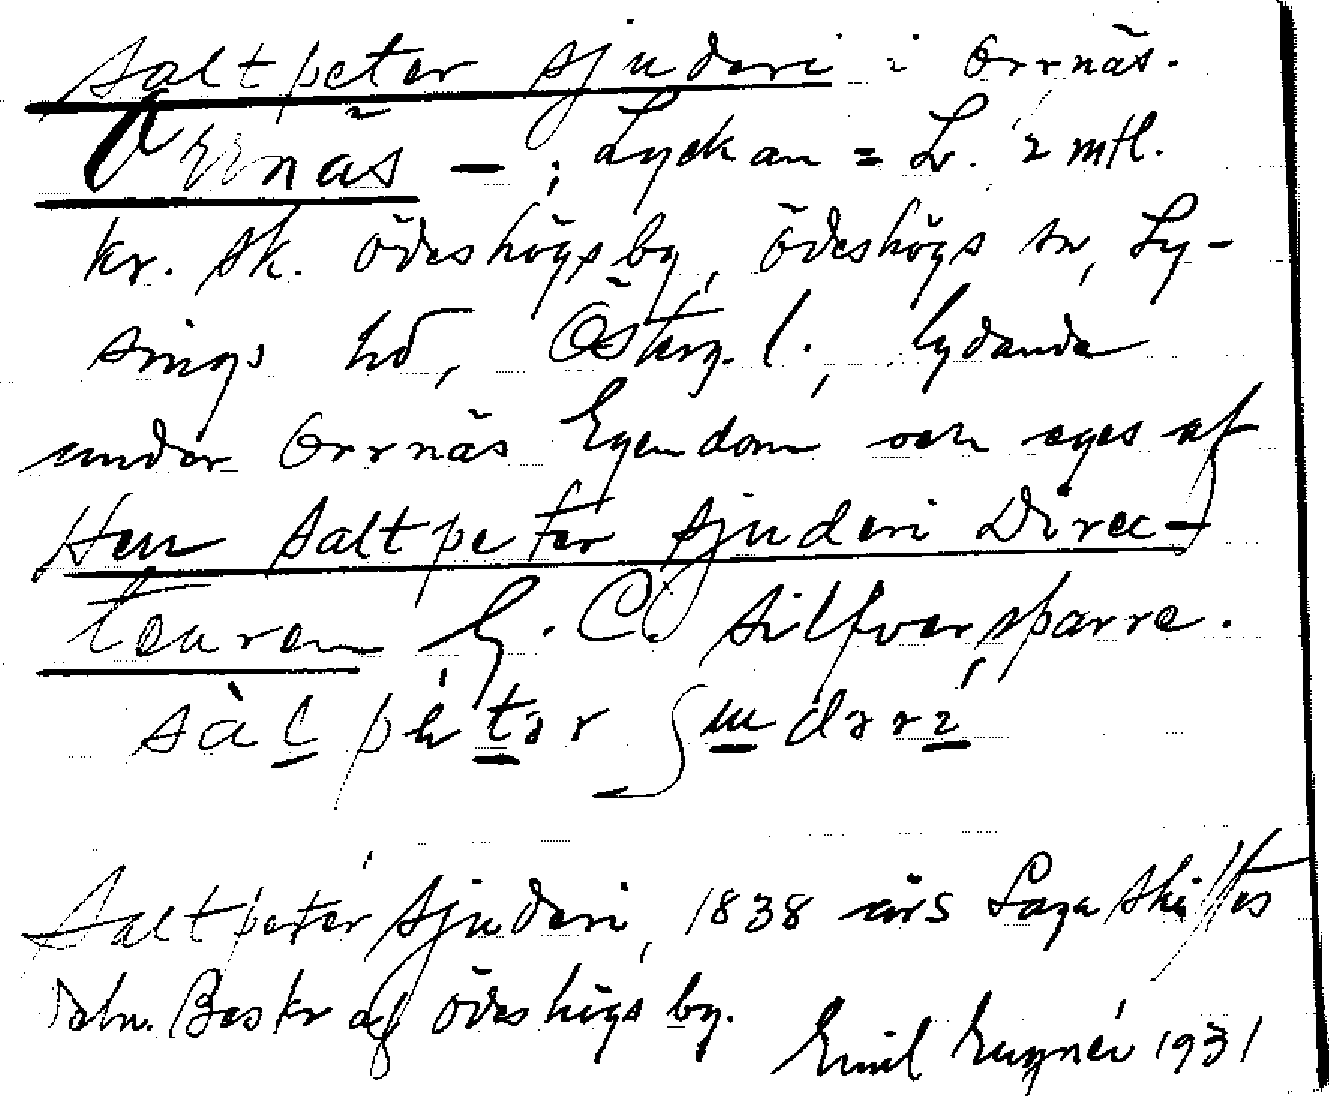 Saltpeter sjuderi i Orrnäs.
Orrnäs — ; Lyckan = L. 2 mtl.
kr. sk. Ödeshögsby, Ödeshögs sn, Ly-
sings hd, Österg. l., lydande
under Orrnäs Egendom och eges af
Herr Saltpeter sjuderi Direc-
teuren G. C. Silfversparre.
Saltpeter sjuderi, 1838 års Laga Skiftes
Beskr af Ödeshögs by.
Emil 1931